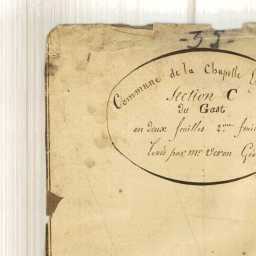 -35-
Commune de la Chapelle
Section C
du Gast
en deux feuilles 2me feui
levée par Mr Veron Gé